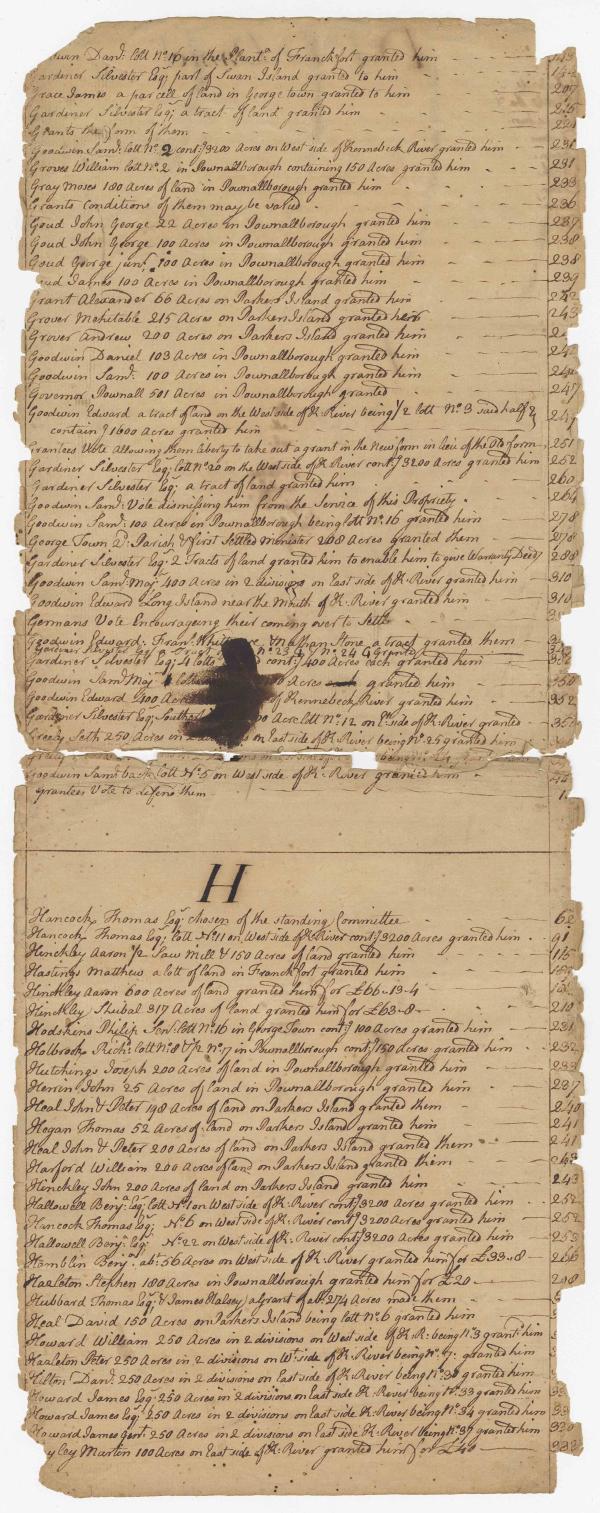 win Danl. lott No. 16 in the Plantn. of Franckfort granted him
Gardener Silvester Esqr. part of Swan Island granted to him
Grace James a parcell of land in George town granted to him 207
Gardener Silvester Esqr. a tract of land granted him
Grants the form of them
Goodwin Saml. lott No. 2 contg. 3200 Acres on West side of Kennebeck River granted him 231
Groves William lott No. 2 in Pownallborough containing 150 Acres granted him 231
Gray Moses 100 Acres of land in Pownallborough granted him 233
Grants Conditions of them may be valid 236
Goud John George 22 Acres in Pownallborough granted him 237
Goud John George 100 Acres in Pownallborough granted him 238
Goud George junr. 100 Acres in Pownallborough granted him 238
ud James 100 Acres in Pownallborough granted him 239
Grant Alexander 66 Acres on Parkers Island granted him 242
Grover Mehitable 215 Acres on Parkers Island granted her 243
Grover Andrew 200 Acres on Parkers Island granted him
Goodwin Daniel 103 Acres in Pownallborough granted him
Goodwin Saml. 100 Acres in Pownallborough granted him
Governor Pownall 501 Acres in Pownallborough granted 247
Goodwin Edward a tract of land on the West side of K. River being 1/2 lott No. 3 said half
containg. 1600 Acres granted him 247
Grantees Vote allowing them liberty to take out a grant in the New form in lieu of the Old form 251
Gardiner Silvester Esqr. lott No. 20 on the West side of K River contg. 3200 Acres granted him 252
Gardiner Silvester Esqr. a tract of land granted him 260
Goodwin Saml. Vote dismissing him from the Service of this Propriety 264
Goodwin Saml. 100 Acres in Pownallborough being lott No. 16 granted him 278
George Town 2d. Parish & first Settled Minister 208 Acres granted them 278
Gardiner Silvester Esqr. 2 Tracts of land granted him to enable him to give Warranty Deeds 288
Goodwin Saml. Majr. 400 Acres in 2 divisions on East side of K. River granted him 310
Goodwin Edward Long Island near the Mouth of K. River granted him 310
Germans Vote Encourageing their coming over to Settle
Goodwin Edward, Fran. Whit & Nathan Stone a tract granted them
No. 23 & No. 24 Granted
Gardiner Silvester Esqr. 4 lotts contg. 400 Acres each granted him
Goodwin Saml. Majr. lott Acres granted him 350
Goodwin Edward 400 Acres of Kennebeck River granted him 352
Gardiner Silvester Esqr. Acre lott No. 12 on Et. side of K. River granted 35
Greely Seth 250 Acres in on East side of K. River being No. 25 granted him
Goodwin Saml. back lott No. 5 on West side of K. River granted him
Grantees Vote to defend them
H
Hancock Thomas Esqr. chosen of the standing Committee 62
Hancock Thomas Esqr. lott No. 11 on West side of K River contg. 3200 Acres granted him 91
Hinckley Aaron 1/2 Saw Mill & 150 Acres of land granted him 115
Hastings Matthew a lott of land in Franckfort granted him
Hinckley Aaron 600 Acres of land granted him for £66-13-4
Hinckley Shubal 317 Acres of Land granted him for £63-8- 210
Hodskins Philip Senr. lott No. 16 in George Town contg. 100 Acres granted him 231
Holbrook Richd. lott No. 8 & 1/2 No. 7 in Pownallborough contg. 150 Acres granted him 232
Hutchings Joseph 200 Acres of land in Pownallborough granted him 233
Herrin John 25 Acres of land in Pownallborough granted him 237
Heal John & Peter 198 Acres of land on Parkers Island granted them 240
Hogan Thomas 52 Acres of land on Parkers Island granted him 241
Heal John & Peter 200 Acres of land on Parkers Island granted them 241
Harford William 200 Acres of land on Parkers Island granted them 243
Hinckley John 200 Acres of land on Parkers Island granted him 243
Hallowell Benja. Esqr. lott No. 1 on West side of K. River contg. 3200 Acres granted him 252
Hancock Thomas Esqr. No. 6 on West side of K. River contg. 3200 Acres granted him 252
Hallowell Benj. Esqr. No. 22 on West side of K. River contg. 3200 Acres granted him 253
Hamblin Benja. abt. 56 Acres on West side of K. River granted him for £33-8 266
Hazleton Stephen 180 Acres in Pownallborough granted him for £20
Hubbard Thomas Esqr. & James Halsey a Grant of abt. 274 Acres made them
Heal David 150 Acres on Parkers Island being lott No. 6 granted him
Howard William 250 Acres in 2 divisions on West side of K. R. being No. 3 grantd. him
Hazleton Peter 250 Acres in 2 divisions on Wt. side of K. River being No. 7. granted him
Hilton Danl. 250 Acres in 2 divisions on East side of K. River being No. 30 granted him
Howard James Esqr. 250 Acres in 2 divisions on East side K. River being No. 33 granted him
Howard James Esqr. 250 Acres in 2 divisions on East side K. River being No. 34 granted him
Howard James Junr. 250 Acres in 2 divisions on East side K. River being No. 37 granted him 330
ley Martin 100 Acres on East side of K. River granted him for £40 332